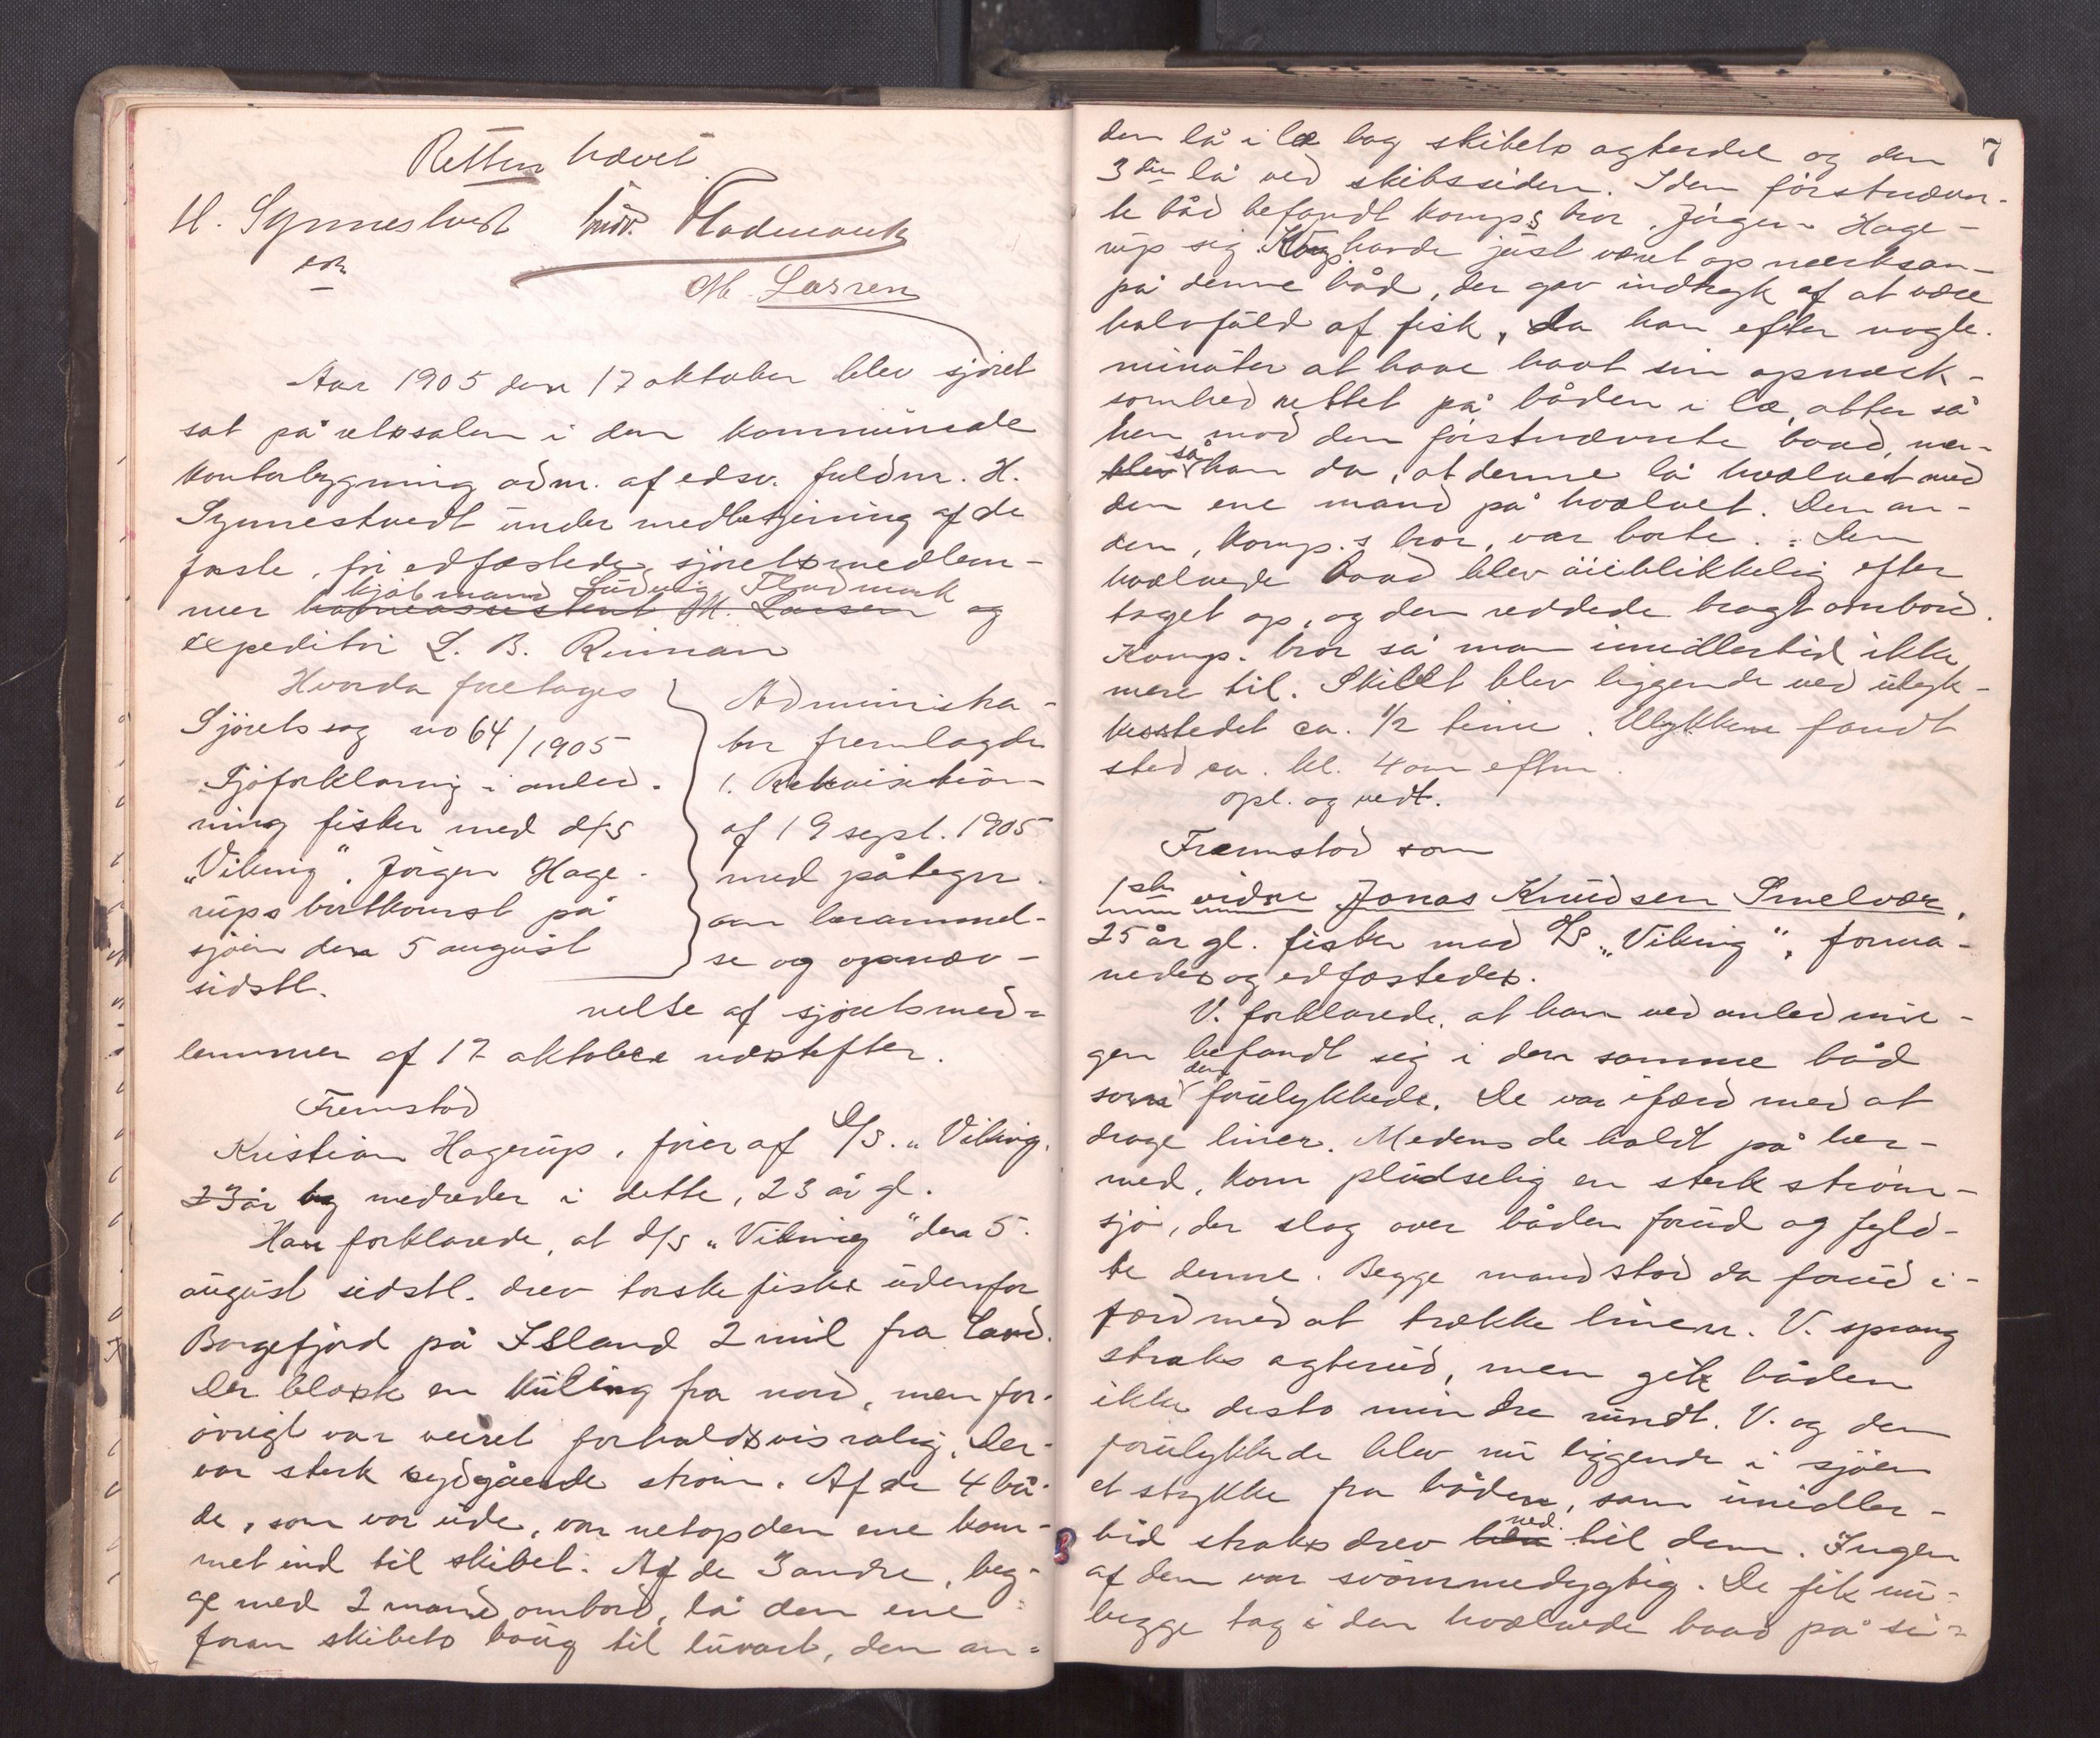 Retten hævet
H. Synnestvedt Ludv. Fladmark
cst
M. Larsen
Aar 1905 den 17 oktober blev sjöret
sat på retssalen i den kommunale
kontorbygning adm. af edsv. fuldm. H.
Synnestvedt under medbetjening af de
faste, fri edfæstede sjöretsmedlem-
kjöbmand Ludvig Fladmark
mer havneassistent M. Larsen og
expeditör L. B. Rinnan
Hvorda foretages
Sjöretssag no 64/1905
Sjöforklaring i anled-
ning fisker med d/s
„Viking", Jörgen Hage-
rups bortkomst på
sjöen den 5 august
sidstl.
Administra-
tor fremlagde
1. Rekvisition
af 19 sept. 1905
med påtegn.
om berammel-
se og opnæv-
nelse af sjöretsmed-
lemmer af 17 oktober næstefter.
Fremstod
Kristian Hagerup, förer af D/S. „Viking,
23 år og medreder i dette, 23 år gl.
Han forklarede, at d/s „Viking" den 5.
august sidstl. drev torskefiske udenfor
Borgefjord på Island 2 mil fra Land.
Der blæste en kuling fra nord, men for-
övrigt var veiret forholdsvis rolig. Der
var sterk sydgående ström. Af de 4 bå-
de, som var ude, var netop den ene kom-
met ind til skibet. Af de 3 andre, beg-
ge med 2 mand ombord, lå den ene
foran skibets boug til luvart, den an-
7
den lå i læ bag skibets agterdel og den
3die lå ved skibssiden. I den förstnævn-
te båd befandt komp.s bror, Jörgen Hage-
rup sig. Komp. havde just været opmerksom
på denne båd, der gav indtryk af at være
halvfuld af fisk, da han efter nogle
minuter at have havt sin opmerk-
somhed rettet på båden i læ, atter så
hen mod den förstnævnte baad,
blev så han da, at denne lå hvælvet med
den ene mand på hvælvet. Den an-
den, komp.s bror, var borte. Den
hvælvede baad blev öieblikkelig efter
taget op, og den reddede bragt ombord.
Komp. bror så man imidlertid ikke
mere til. Skibet blev liggende ved ulyk-
kesstedet ca. 1/2 time. Ulykken fandt
sted ca. kl. 4 om eftm.
opl. og vedt.
Fremstod som
1ste vidne Jonas Knudsen Smelvær,
25 år gl. fisker med D/S „Viking", forma-
nedes og edfæstedes.
V. forklarede, at han ved anlednin-
gen befandt sig i den samme båd
den
som forulykkede. De var ifærd med at
drage liner. Medens de holdt på her-
med, kom pludselig en sterk ström-
sjö, der slog over båden forud og fyld-
te denne. Begge mand stod da forud i-
færd med at trække linen. V. sprang
straks agterud, men gik båden
ikke desto mindre rundt. V. og den
forulykkede blev nu liggende i sjöen
et stykke fra båden, som imidler-
ned
tid straks drev hen til dem. Ingen
af dem var svömmedygtig. De fik nu
begge tag i den hvælvede baad på si-